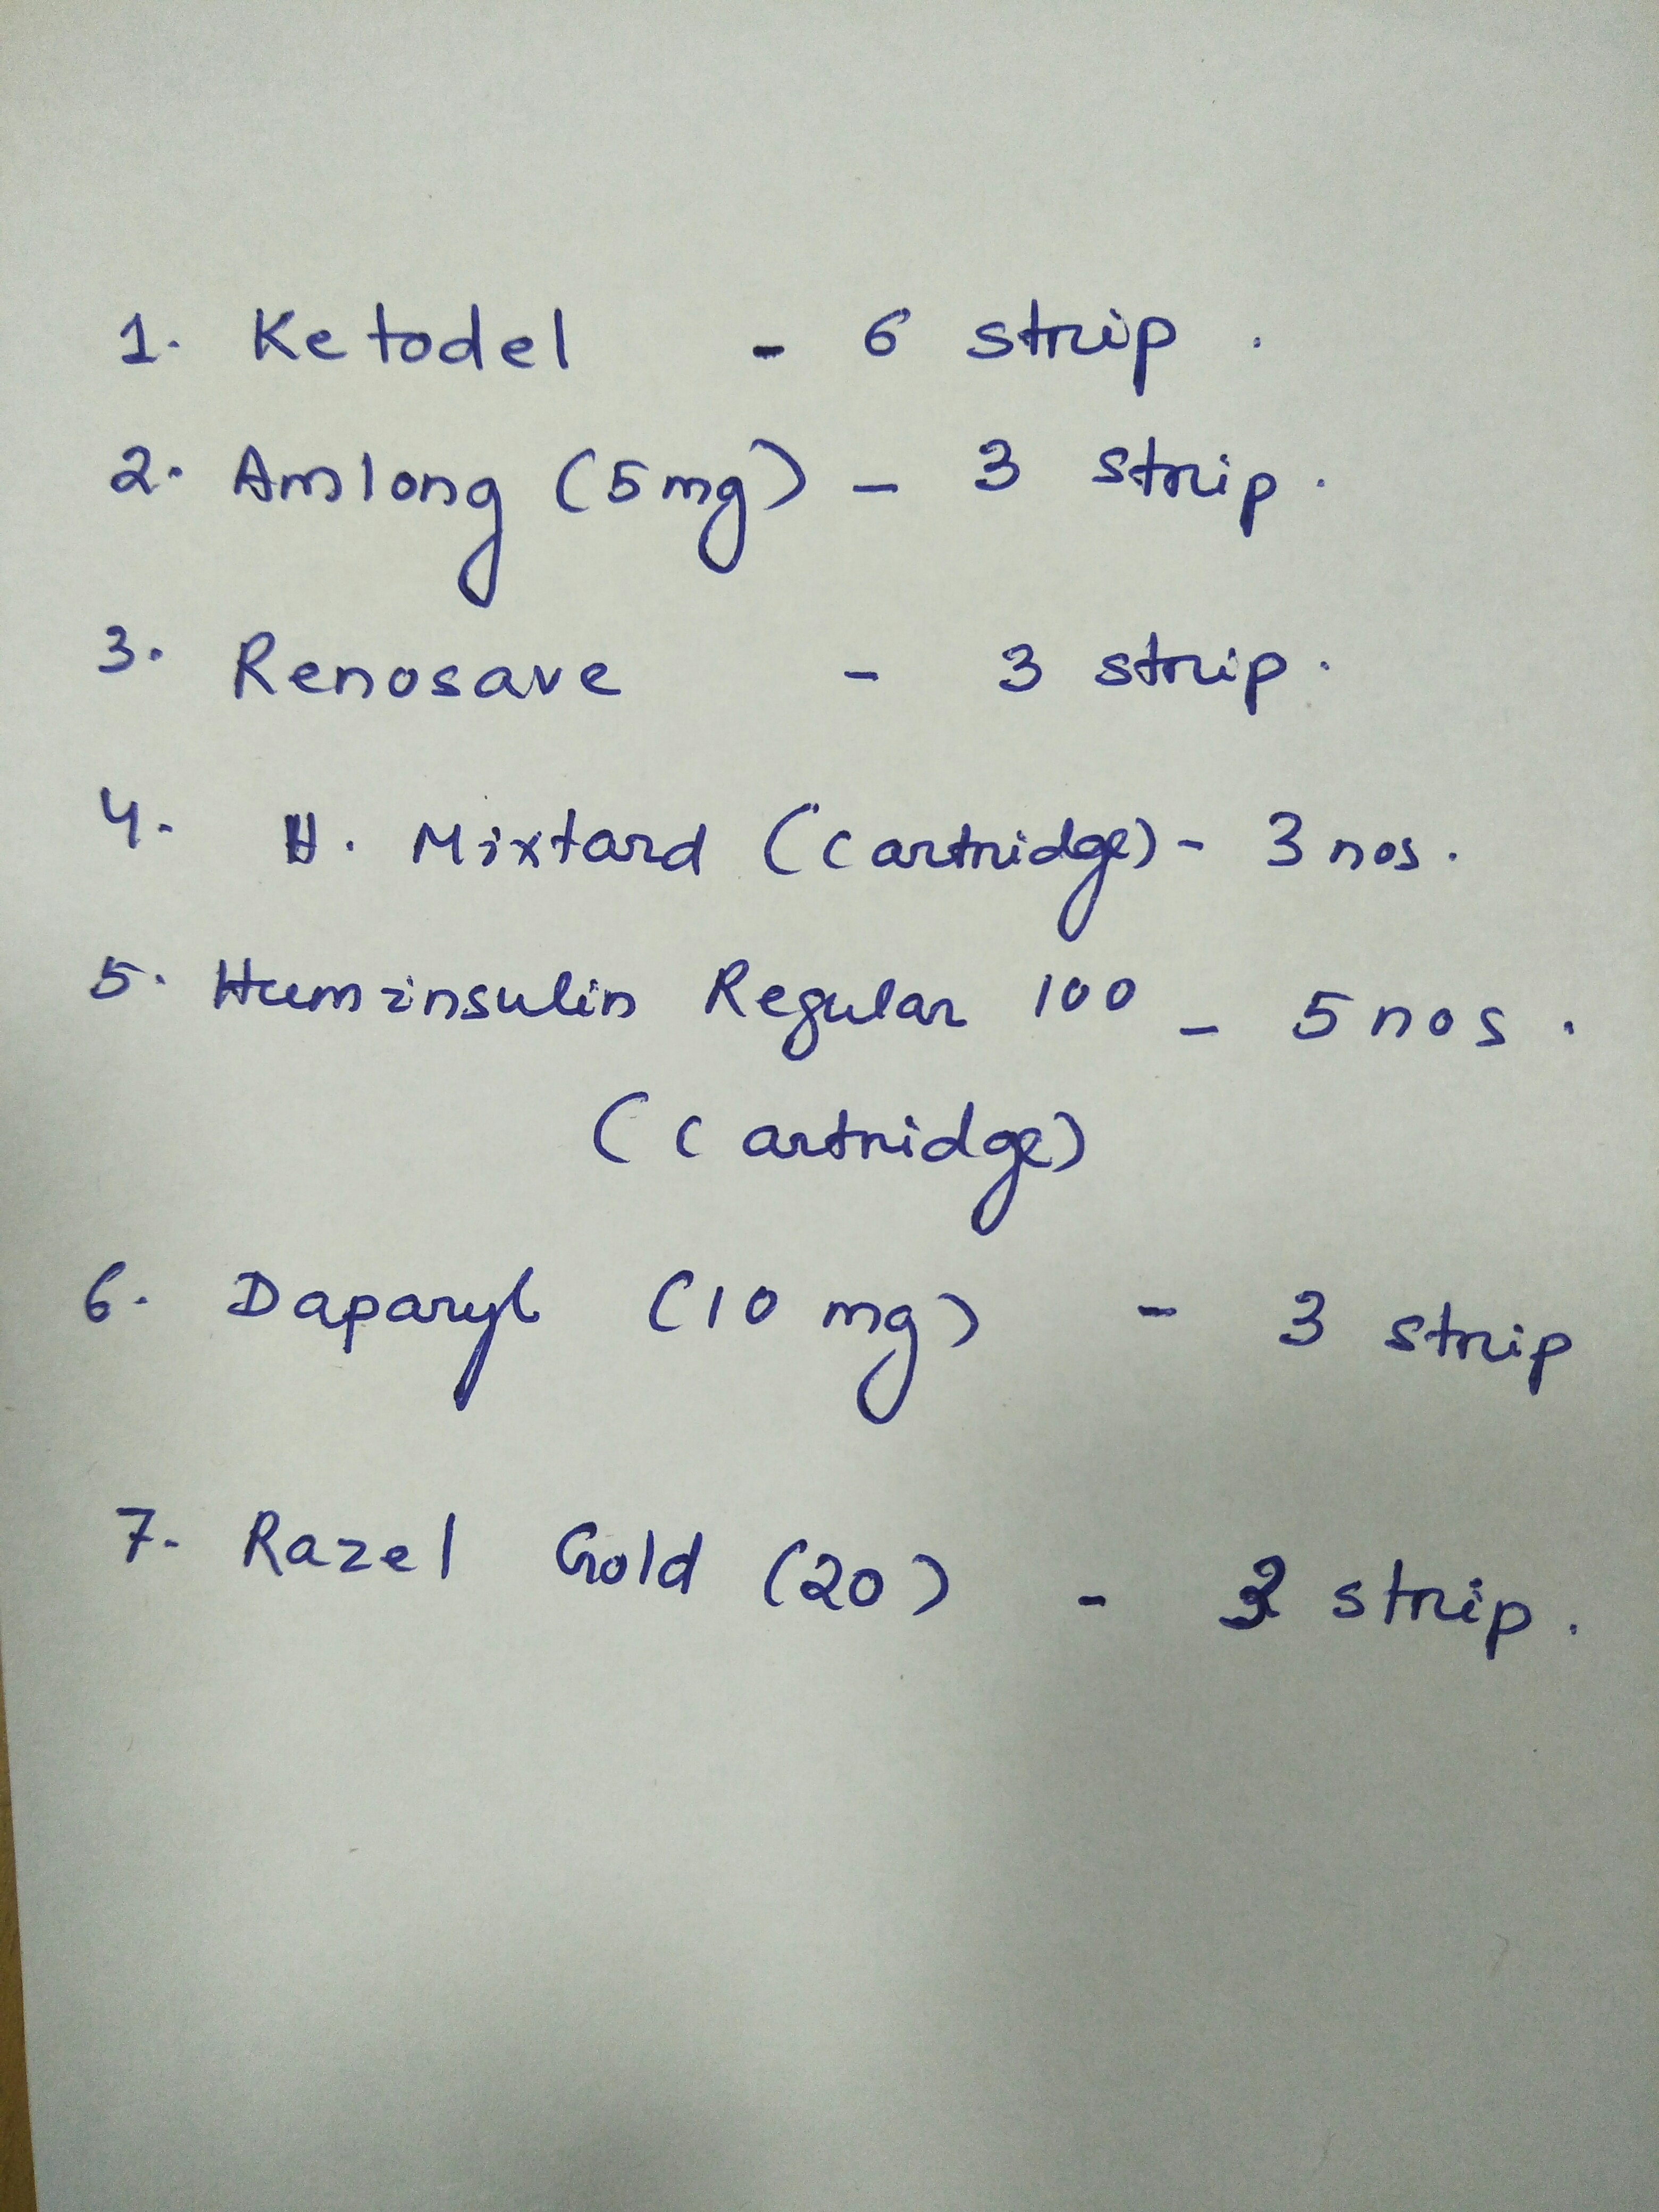 1. Ketodel - 6 strip.
2. Amlong (5mg) - 3 strip.
3. Renosave - 3 strip.
4. H. Mixtard (Cartridge) - 3 nos.
5. Huminsulin Regular 100 - 5 nos.
(Cartridge)
6. Daparyl (10 mg) - 3 strip
7. Razel Gold (20) - strip.